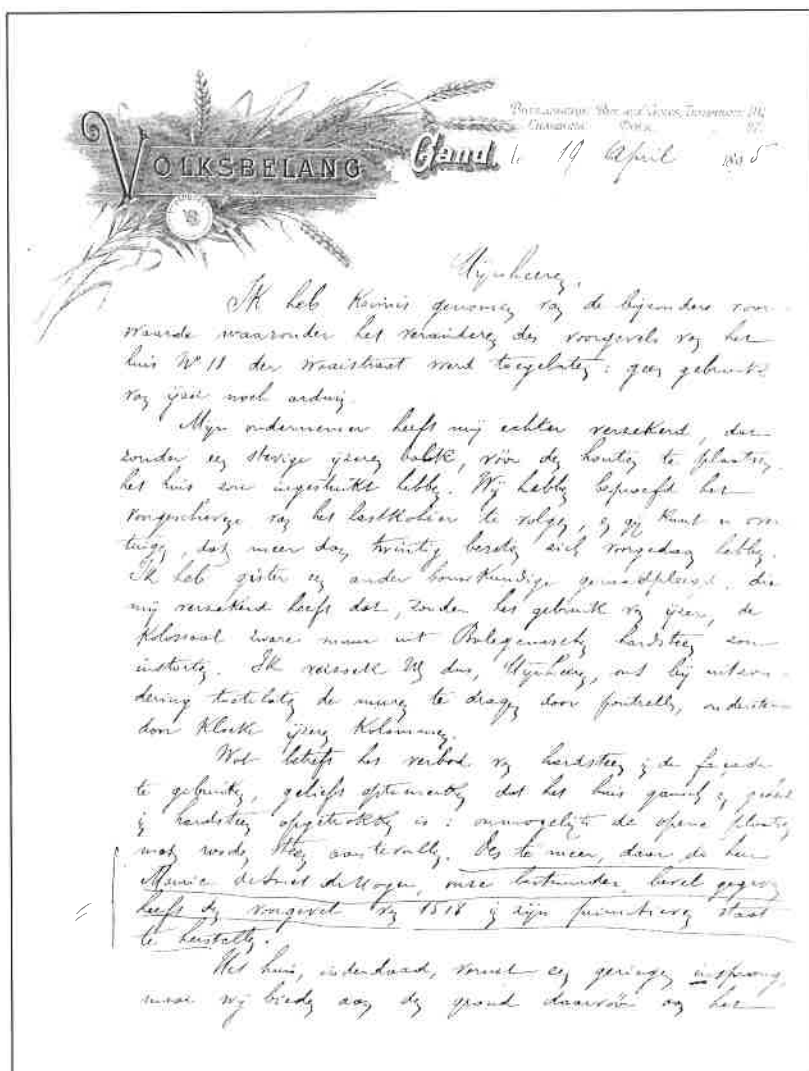 VOLKSBELANG
Gand, le 19 April 1895
Mijnheeren,
Ik heb kennis genomen van de bijzondere voor-
waarde waaronder het veranderen des voorgevels van het
huis No 11 der waaistraat werd toegelaten: geen gebruik
van ijzer noch arduin.
Mijn ondernemer heeft mij echter verzekerd, dat
zonder een stevige ijzeren balk, vóór den houten te plaatsen,
het huis zou ingestuikt hebben. Wij hebben beproefd het
voorgeschrevene van het lastkohier te volgen, en gij kunt u over-
tuigen, dat meer dan twintig zich voorgedaan hebben.
Ik heb gister een ander bouwkundige geraadpleegd, die
mij verzekerd heeft dat, zonder het gebruik van ijzer, de
kolossaal zware muur uit hardsteen zou
instorten. Ik verzoek U dus, Mijnheeren, ons bij uitzon-
dering toetelaten de muren te dragen door poutrells, ondersteund
door ijzeren kolommen.
Wat betreft het verbod van hardsteen in de façade
te gebruiken, gelieft optemerken dat het huis gansch en geheel
in hardsteen opgetrokken is: onmogelijk de opene plaatsen
met steen aantevullen. Des te meer, daar de heer
onze bestuurder, bevel gegeven
heeft den voorgevel van 15 in zijn primitieven staat
te herstellen.
Het huis, inderdaad, vormt een geringen insprong,
maar wij bieden aan den grond daarvóór aan het